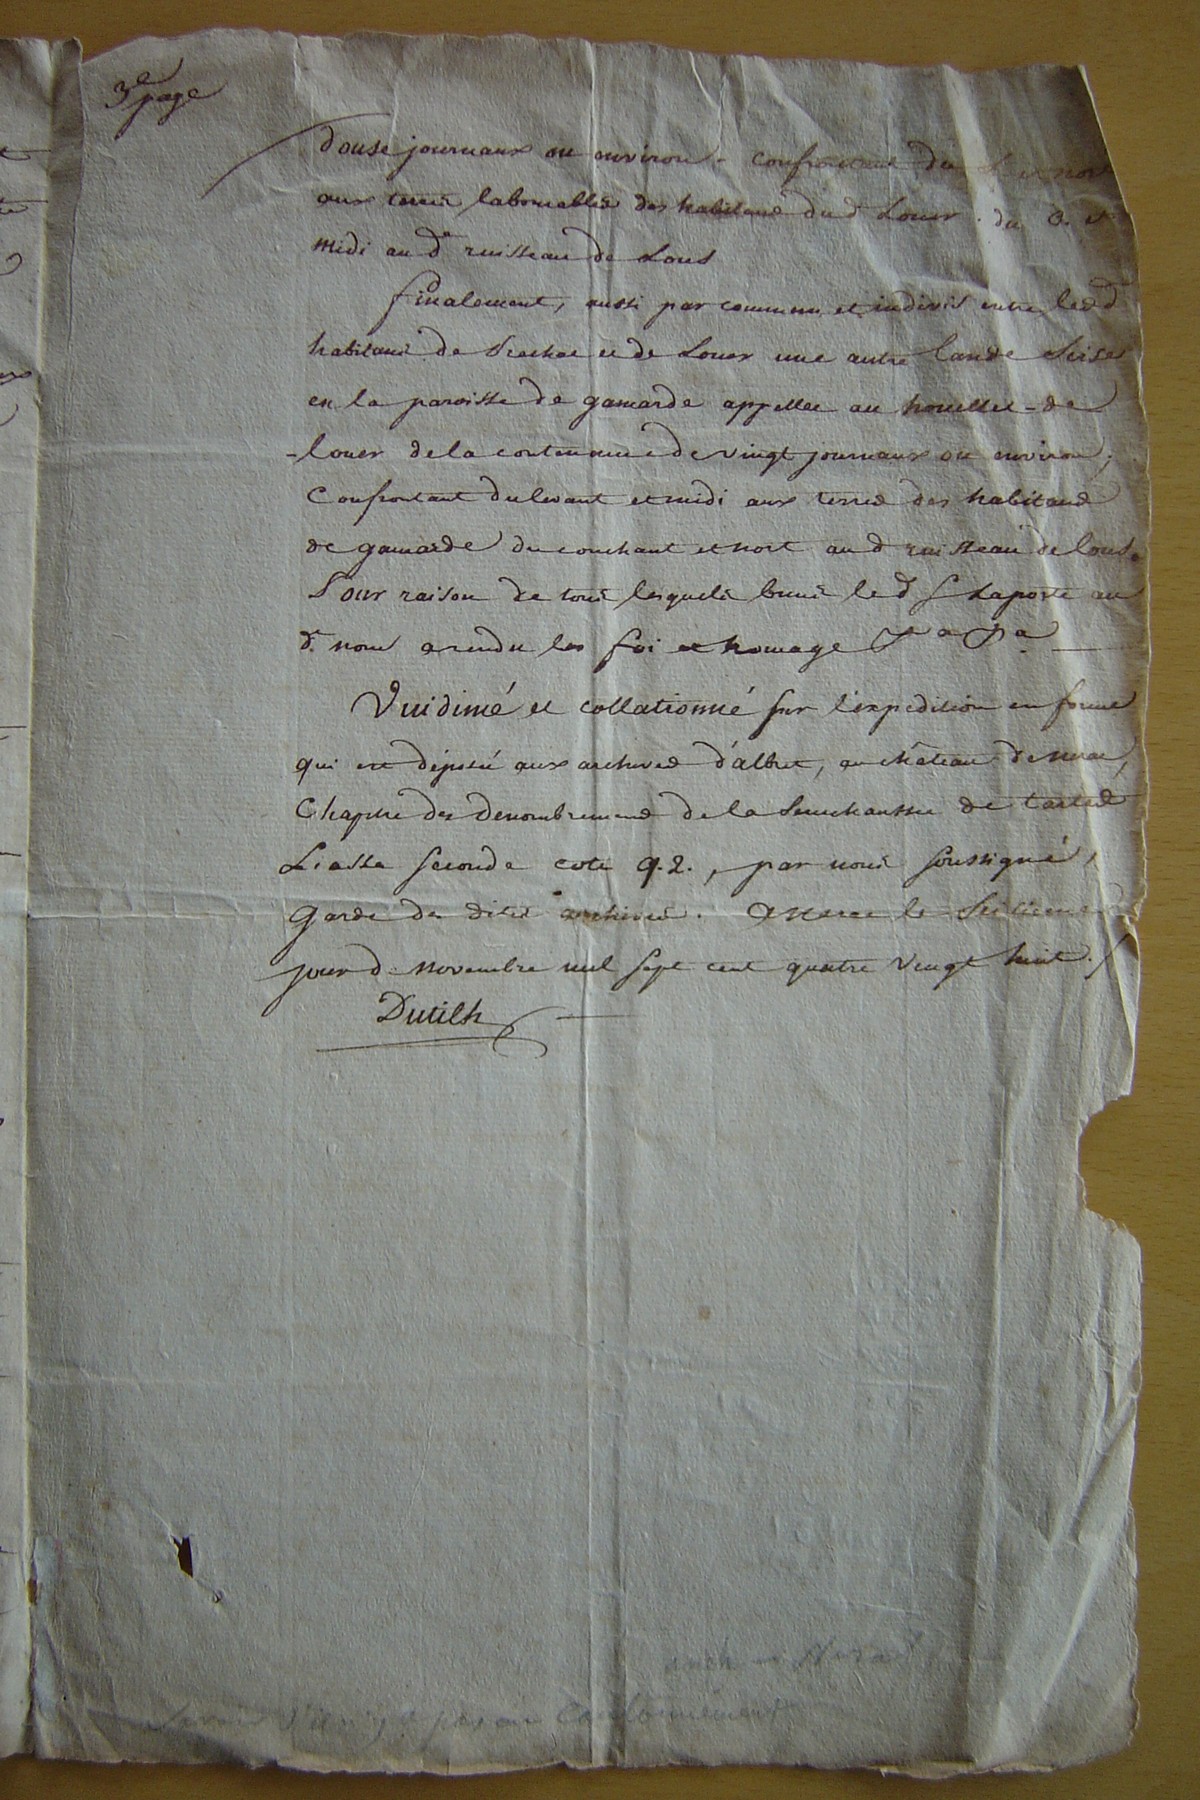 3e page
douse journaux ou environ - confrontant du L. et nort
aux terres labourables des habitans dud Louer. du C. et
midi au d. ruisseau de Lous
finalement, aussi par commun et indivis entre lesd
habitans de et de Louer une autre lande sise
en la paroisse de gamarde appellée au houillet-de
-louer de la contenance de vingt journaux ou environ;
Confrontant du levant et midi aux terres des habitans
de gamarde du couchant et nort au d ruisseau de lous.
Pour raison de tous lesquels biens le d S Laporte au
d. nom a rendu les foi et homage
Vuidimé et collationné sur l'expedition en forme
qui est déposée aux archives d'albret, au château de nerac,
Chapitre des denombremens de la Senechaussée de tartas
Liasse seconde cote q.2., par nous soussigné,
Garde des dites archives. A Nerac le seizieme
jour de novembre mil sept cent quatre vingt huit./
Dutilh
Nerac
Savoir s'il n'y a pas un Cantonnement